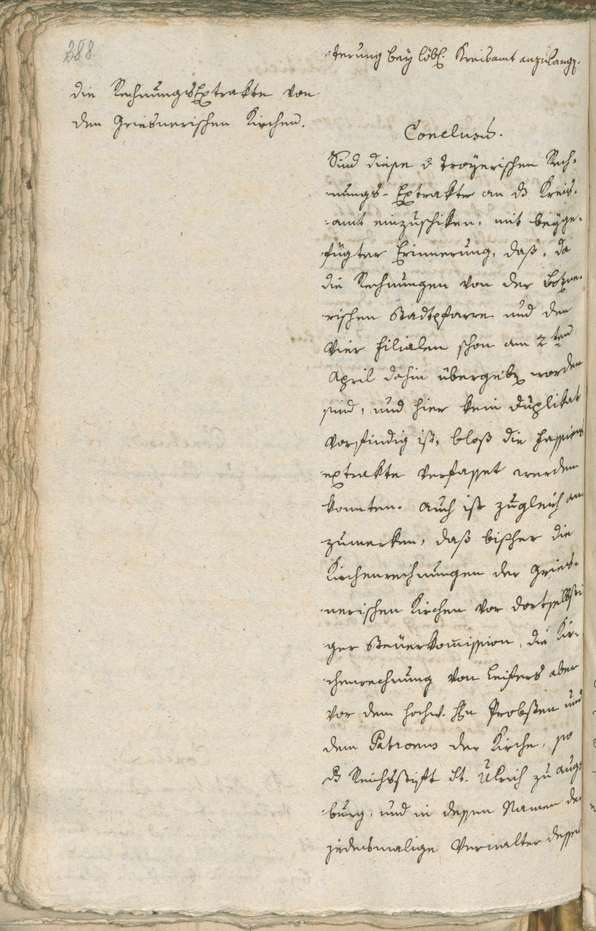 288
die Rechnungs Extrakte von
den Griesnerischen Kirchen.
terung bey löbl: Kreisamt anzulangen.
Conclusum.
Sind diese 3 Troyerischen Rech=
nungs-Extrakte an das Kreis=
amt einzuschiken, mit beyge=
fügter Erinnerung, daß, da
die Rechnungen von der Botzne=
rischen Stadtpfarre und den
vier Filialen schon am 2ten
April dahin übergeben worden
sind, und hier kein Duplikat
vorfindig ist, bloß die
extrakte verfasset werden
konnten. Auch ist zugleich an
zumerken, daß bißher die
Kirchenrechnungen der Gries=
nerischen Kirchen vor dortselbsti
ger Steuerkommission, die Kir=
chenrechnung von Leifers aber
vor dem hochw. Hn Probsten und
dem Patronus der Kirche, so
das Reichsstift St. Ulrich zu Augs
burg, und in dessen Namen der
jedesmalige Verwalter dessel